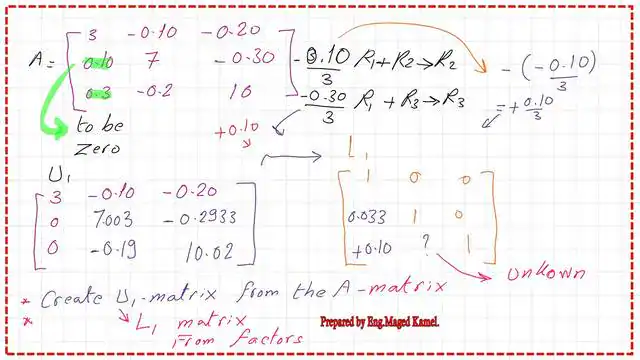 A = [ 3 -0.10 -0.20
0.10 7 -0.30
0.3 -0.2 10 ]
-0.10/3 R1 + R2 → R2
-0.30/3 R1 + R3 → R3
-(-0.10/3)
= +0.10/3
to be
Zero
+0.10
U1
[ 3 -0.10 -0.20
0 7.003 -0.2933
0 -0.19 10.02 ]
L1
[ 1 0 0
0.033 1 0
+0.10 ? 1 ]
unknown
* Create U1-matrix from the A-matrix
* L1 matrix
From factors
Prepared by Eng.Maged Kamel.